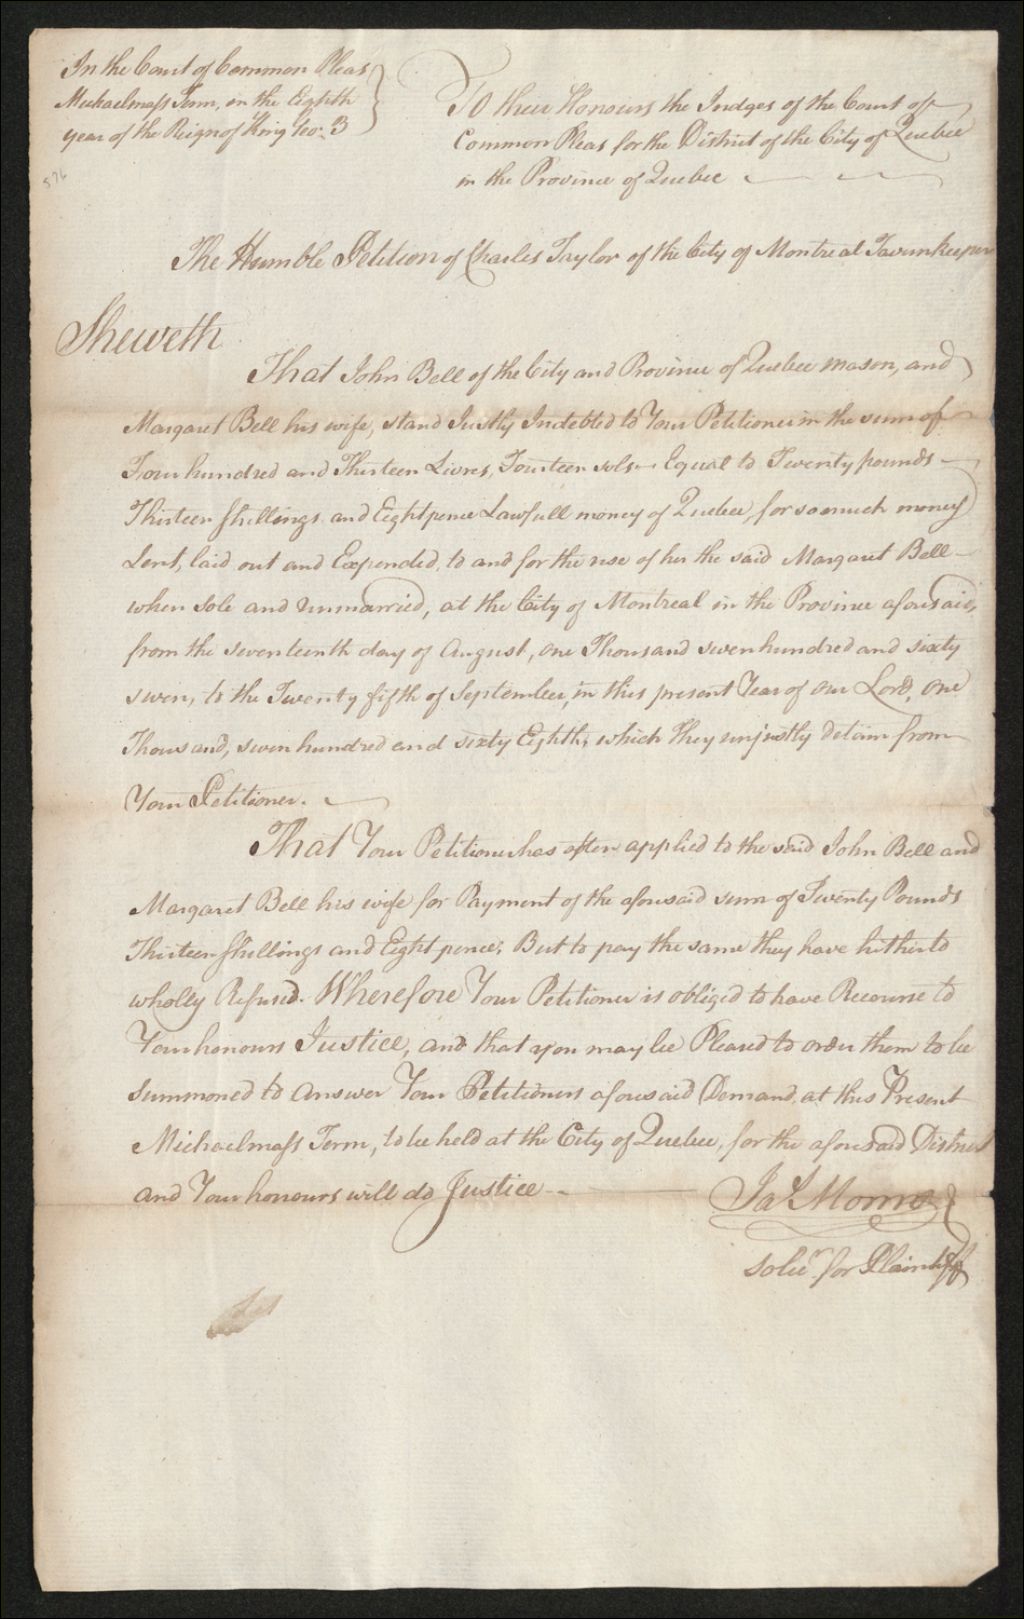 In the Court of Common Pleas
Michaelmass Term, in the Eighth
year of the Reign of King Geo: 3
576
To their Honours the Judges of the Court of
Common Pleas for the District of the City of Quebec
in the Province of Quebec
The Humble Petition of Charles Taylor of the City of Montreal Tavernkeeper
Sheweth
That John Bell of the City and Province of Quebec mason, and
Margaret Bell his wife, stand Justly Indebted to Your Petitioner in the sum of
Four hundred and Thirteen Livres, Fourteen sols Equal to Twenty pounds
Thirteen shillings and Eightpence Lawfull money of Quebec, for so much money
Lent, laid out and Expended, to and for the use of her the said Margaret Bell
when sole and unmarried, at the City of Montreal in the Province aforesaid,
from the seventeenth day of August, one Thousand seven hundred and sixty
seven, to the Twenty fifth of September, in this present Year of our Lord, one
Thousand, seven hundred and sixty Eighth, which they unjustly detain from
Your Petitioner.
That Your Petitioner has often applied to the said John Bell and
Margaret Bell his wife for Payment of the aforesaid sum of Twenty Pounds
Thirteen shillings and Eight pence; But to pay the same they have hitherto
wholly Refused. Wherefore Your Petitioner is obliged to have Recourse to
Your honours Justice, and that you may be Pleased to order them to be
summoned to answer Your Petitioners aforesaid Demand, at this Present
Michaelmass Term, to be held at the City of Quebec, for the aforesaid District
and Your honours will do Justice
Ja
solicr for Plaintiff